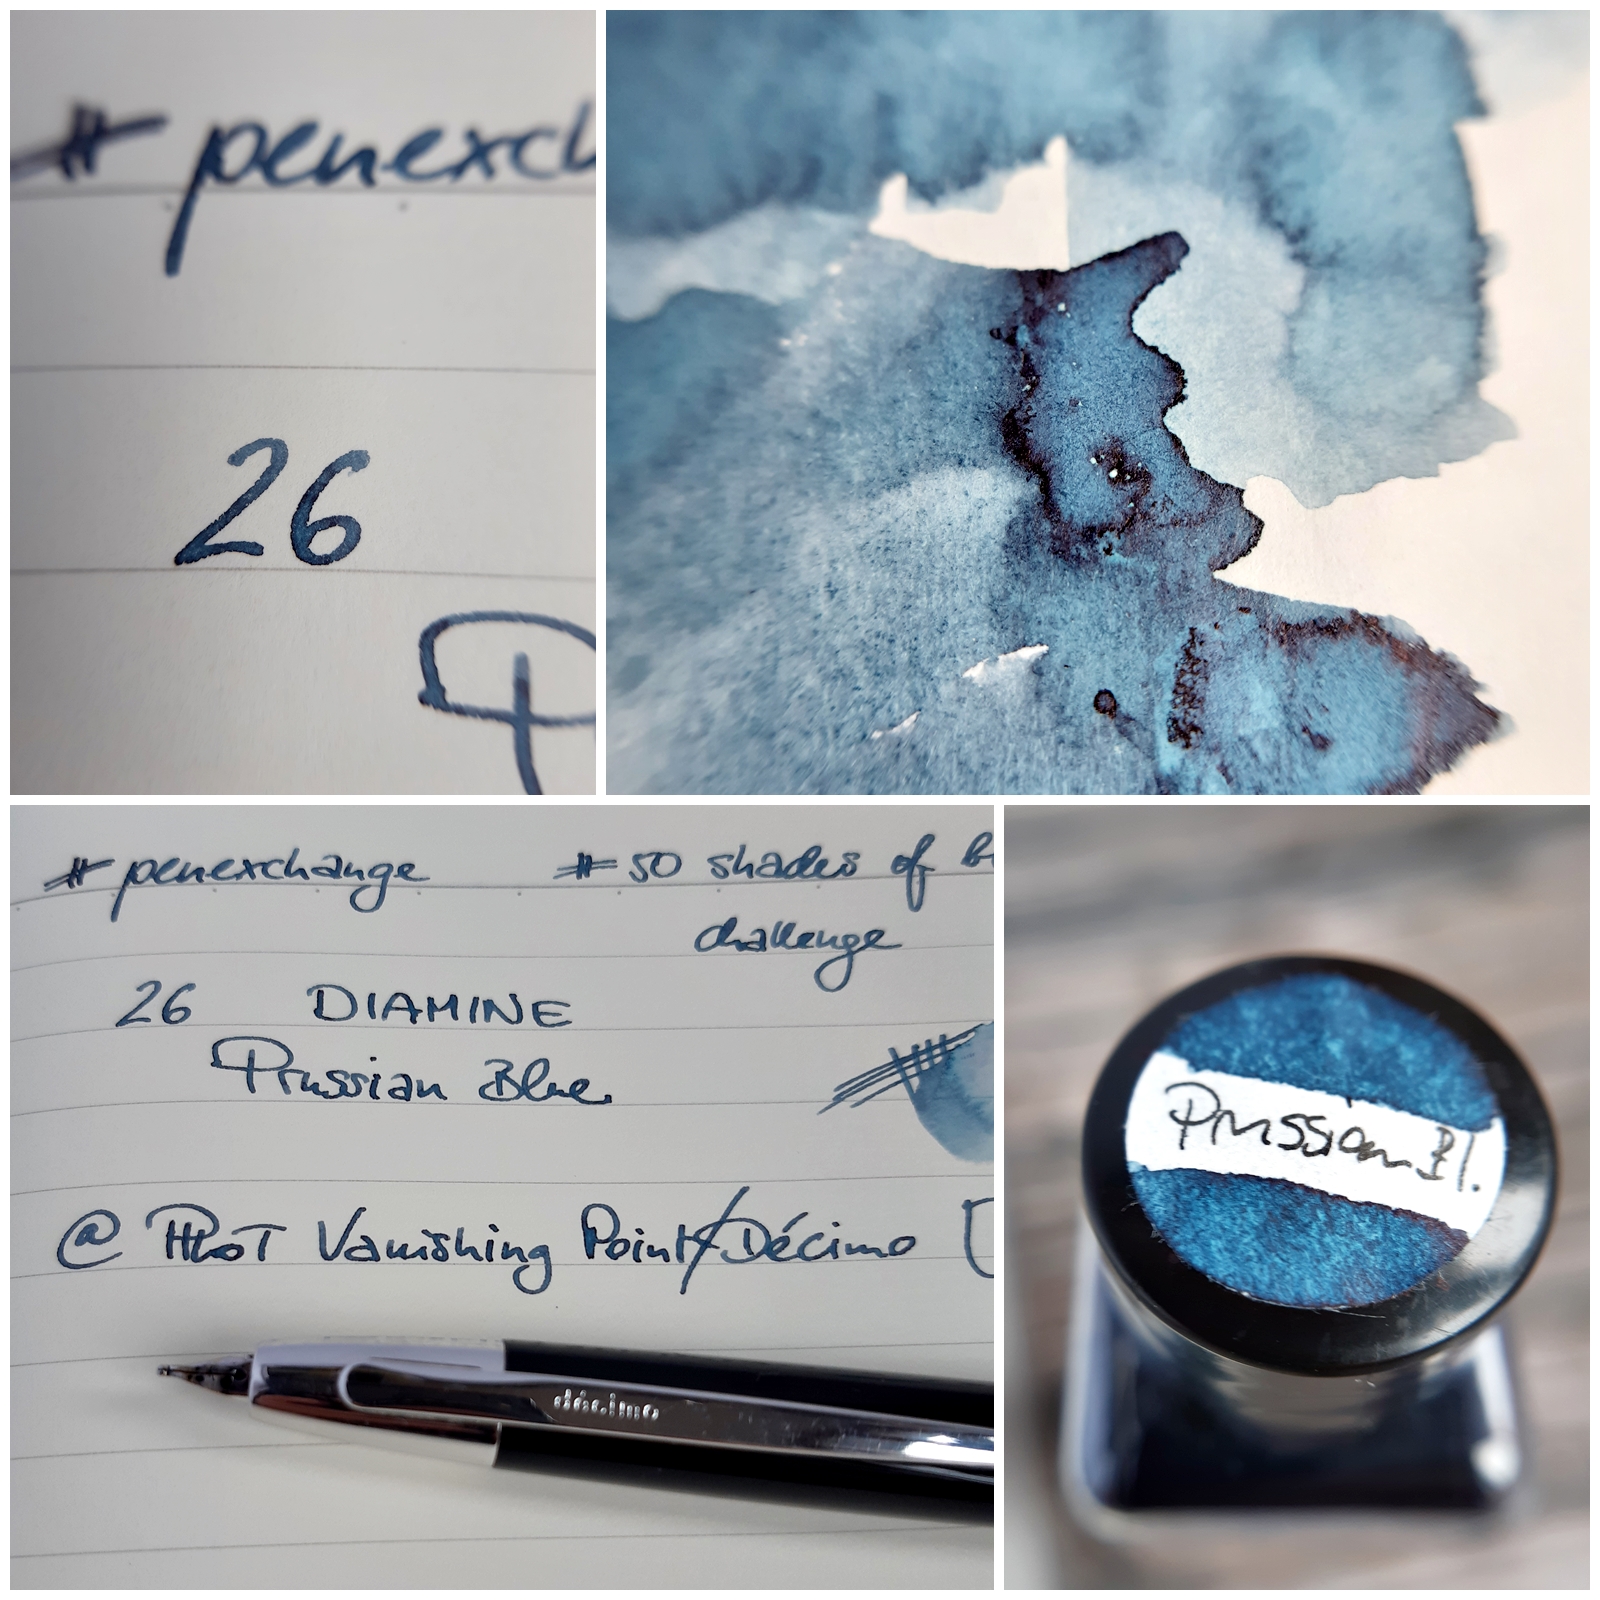 # penexch
26
P
# penexchange # 50 shades of b
challenge
26 DIAMINE
Prussian Blue
@ PILOT Vanishing Point/Décimo
décimo
Prussian Bl.